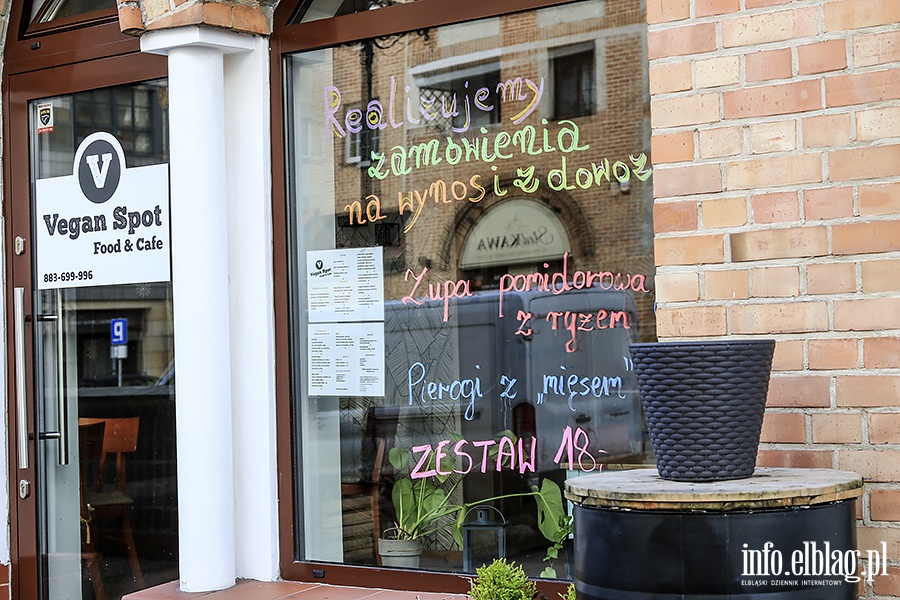 V
Vegan Spot
Food & Cafe
883-699-996
9
Realizujemy
zamówienia
na wynos i z dowoz
StrefKAWA
Vegan Spot
Zupa pomidorowa
z ryżem
Pierogi z „mięsem"
ZESTAW 18,-
info.elblag.pl
ELBLĄSKI DZIENNIK INTERNETOWY